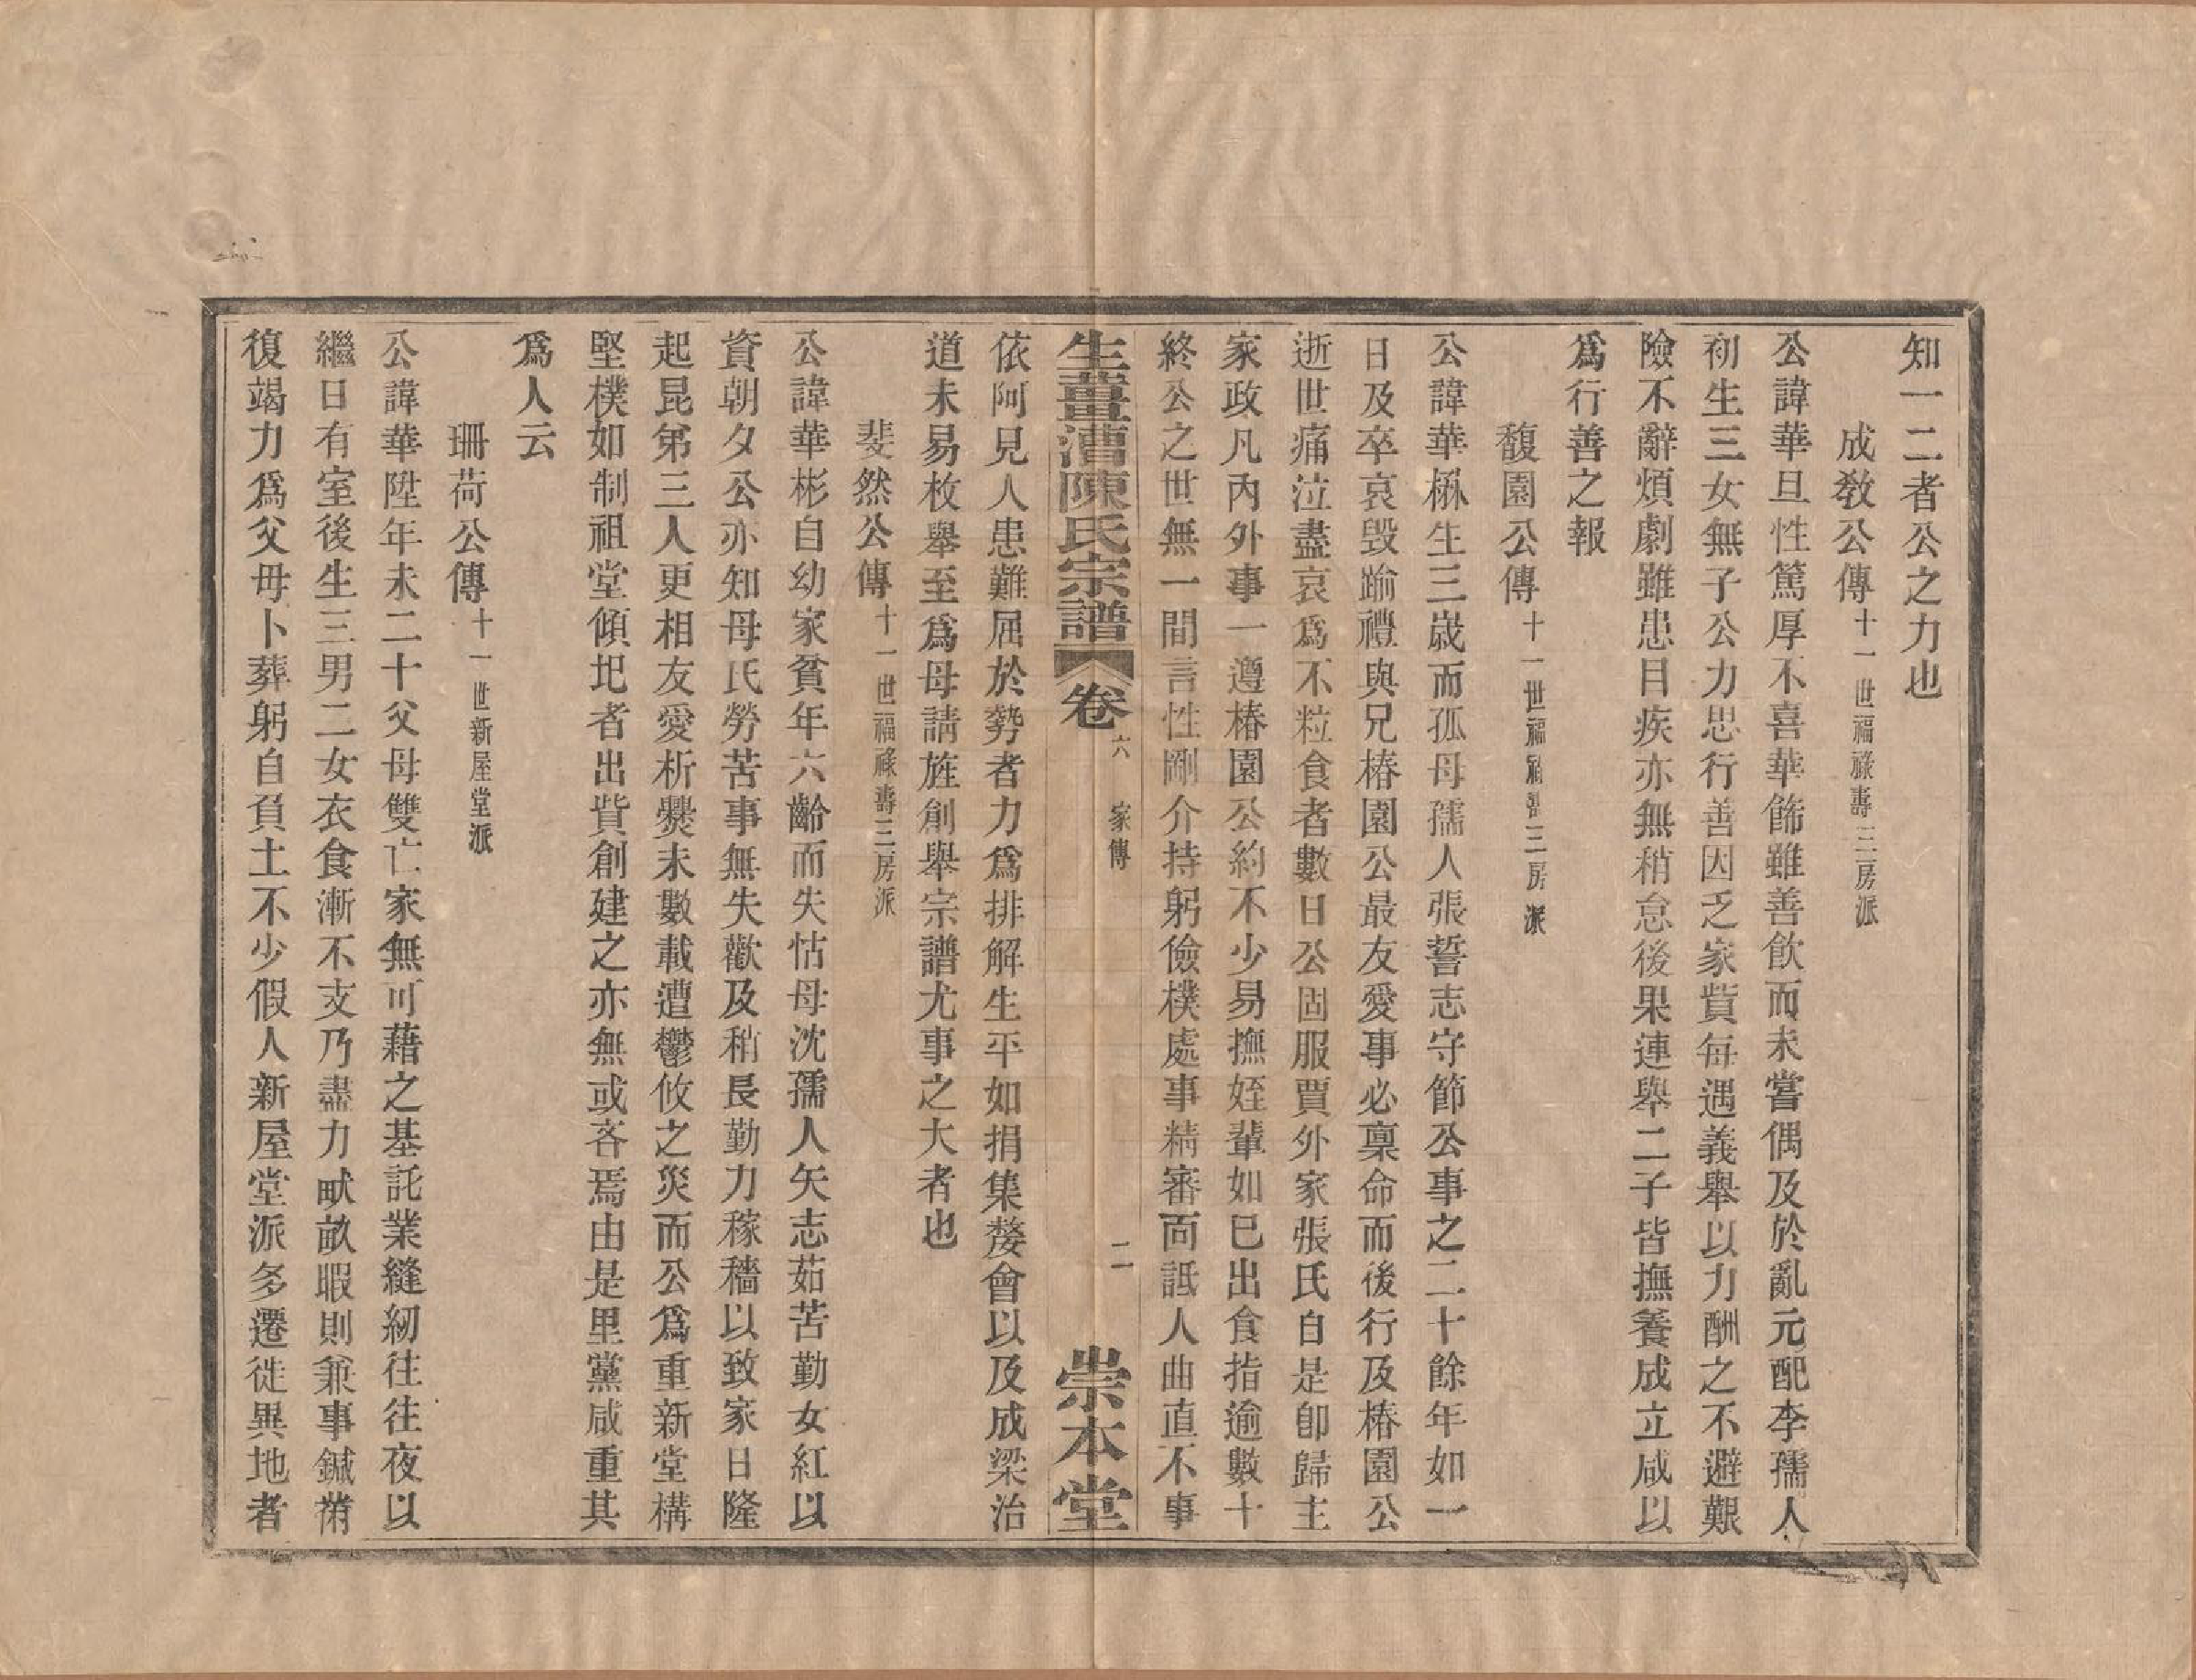 知一二者公之力也
成教公傳十一世福祿壽三房派
公諱華旦性篤厚不喜華飾雖善飲而未嘗偶及於亂元配李孺人
初生三女無子公力思行善因乏家貲每遇義舉以力酬之不避艱
險不辭煩劇雖患目疾亦無稍怠後果連舉二子皆撫養成立咸以
爲行善之報
馥園公傳十一世福祿壽三房派
公諱華楙生三歲而孤母孺人張誓志守節公事之二十餘年如一
日及卒哀毀踰禮與兄椿園公最友愛事必稟命而後行及椿園公
逝世痛泣盡哀爲不粒食者數日公固服賈外家張氏自是卽歸主
家政凡內外事一遵椿園公約不少易撫姪輩如已出食指逾數十
終公之世無一間言性剛介持躬儉樸處事精審面詆人曲直不事
生薑漕陳氏宗譜 卷六 家傳 二 崇本堂
依阿見人患難屈於勢者力爲排解生平如捐集嫠會以及成梁治
道未易枚舉至爲母請旌創舉宗譜尤事之大者也
斐然公傳十一世福祿壽三房派
公諱華彬自幼家貧年六齡而失怙母沈孺人矢志茹苦勤女紅以
資朝夕公亦知母氏勞苦事無失歡及稍長勤力稼穡以致家日隆
起昆弟三人更相友愛析爨未數載遭鬱攸之災而公爲重新堂構
堅樸如制祖堂傾圮者出貲創建之亦無或吝焉由是里黨咸重其
爲人云
珊荷公傳十一世新屋堂派
公諱華陞年未二十父母雙亡家無可藉之基託業縫紉往往夜以
繼日有室後生三男二女衣食漸不支乃盡力畎畝暇則兼事鍼黹
復竭力爲父母卜葬躬自負土不少假人新屋堂派多遷徙異地者